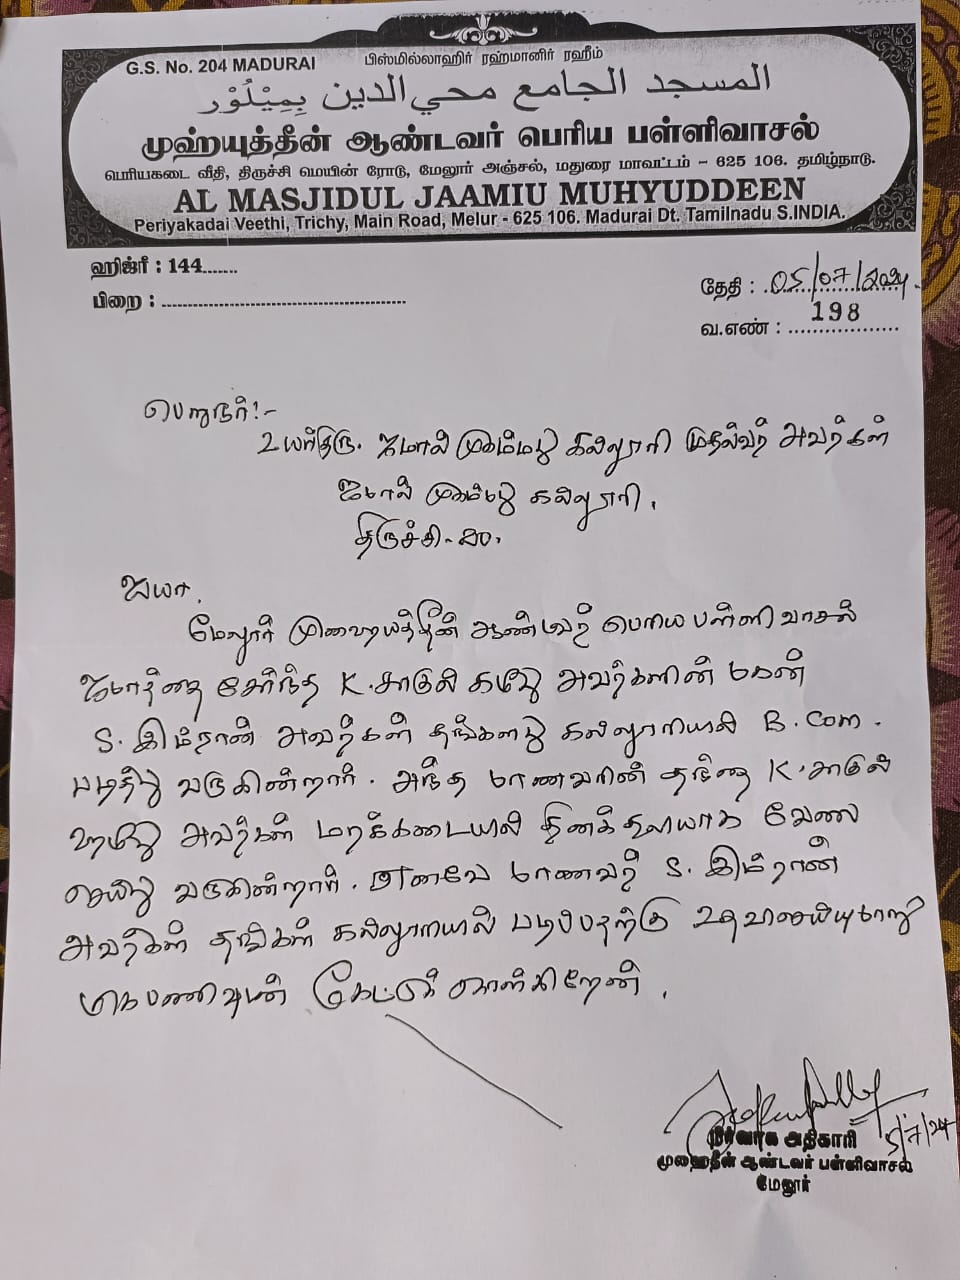 G.S. No. 204 MADURAI
பிஸ்மில்லாஹிர் ரஹ்மானிர் ரஹீம்
المسجد الجامع محي الدين بِمِيْلُوْر
முஹ்யுத்தீன் ஆண்டவர் பெரிய பள்ளிவாசல்
பெரியகடை வீதி, திருச்சி மெயின் ரோடு, மேலூர் அஞ்சல், மதுரை மாவட்டம் – 625 106. தமிழ்நாடு.
AL MASJIDUL JAAMIU MUHYUDDEEN
Periyakadai Veethi, Trichy, Main Road, Melur - 625 106. Madurai Dt. Tamilnadu S.INDIA.
ஹிஜ்ரீ : 144.......
பிறை : ..............................................
தேதி : 05/07/2024
வ.எண் : 198
பெறுநர்!-
உயர்திரு. ஜமால் முகம்மது கல்லூரி முதல்வர் அவர்கள்
ஜமால் முகம்மது கல்லூரி,
திருச்சி-20.
ஐயா,
மேலூர் முஹையத்தீன் ஆண்டவர் பெரிய பள்ளி வாசல்
ஜமாத்தை சேர்ந்த K.சாகுல் கமீது அவர்களின் மகன்
S. இம்ரான் அவர்கள் தங்களது கல்லூரியில் B.Com.
படித்து வருகின்றார். அந்த மாணவரின் தந்தை K.சாகுல்
ஹமீது அவர்கள் மரக்கடையில் தினக்கூலியாக வேலை
செய்து வருகின்றார். எனவே மாணவர் S. இம்ரான்
அவர்கள் தங்கள் கல்லூரியில் படிப்பதற்கு உதவிசெய்யுமாறு
மிக பணிவுடன் கேட்டுக் கொள்கிறேன்.
5/7/24
நிர்வாக அதிகாரி
முஹைதீன் ஆண்டவர் பள்ளிவாசல்
மேலூர்